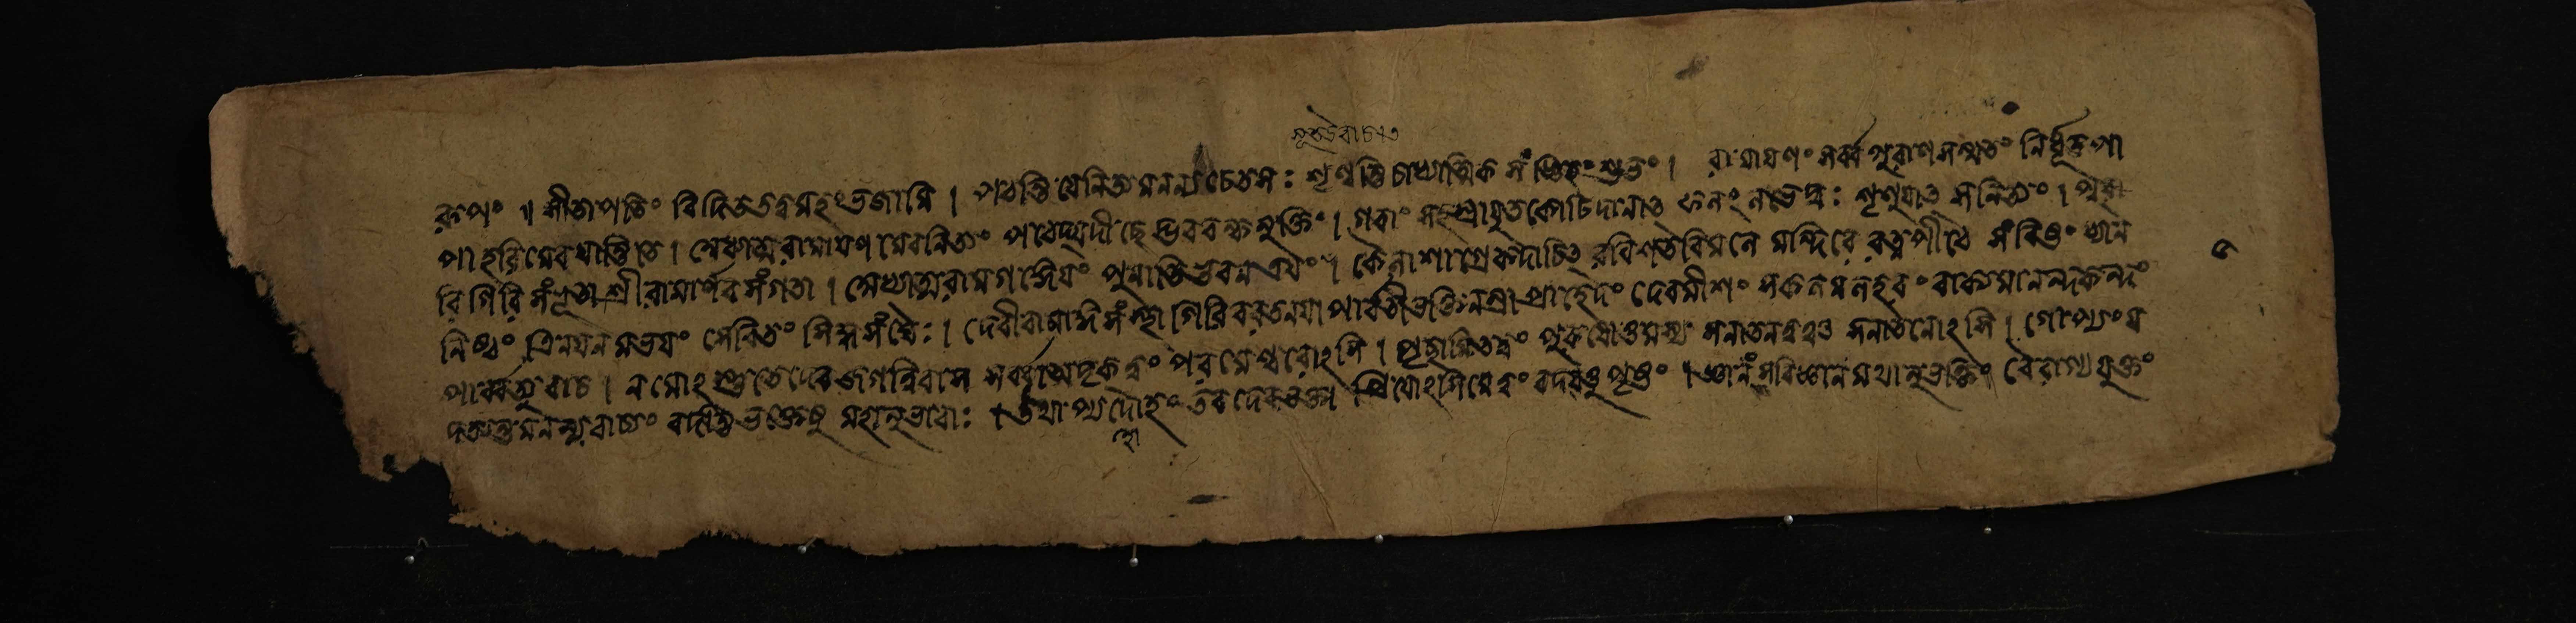 সূত উবাচ
রূপং ॥ সীতাপতিং বিদিততত্ত্বমহং ভজামি । পঠন্তি যে নিত্যমনন্যচেতসঃ শৃণ্বন্তি চাধ্যাত্মিক সংজ্ঞিতং শুভং । রামাযণং সর্ব্বপুরাণসম্মতং নির্ধূতপা
পা হরিমেব যান্তি তে । অধ্যাত্মরামাযণমেব নিত্যং পঠেদ্যদীচ্ছেদ্ভববন্ধমুক্তিং । গবাং সহস্রাযুতকোটিদানাৎ ফলং লভেদ্যঃ শৃণুযাত্ স নিত্যং । পুরা
রিগিরিসংভূতা শ্রীরামার্ণবসংগতা । অধ্যাত্মরামগঙ্গেযং পুনাতি ভুবনত্রযং । কৈলাশাগ্রে কদাচিত্ রবিশতবিমলে মন্দিরে রত্নপীঠে সংবিষ্টং ধ্যান
নিষ্ঠং ত্রিনযনমভযং সেবিতং সিদ্ধসংঘৈঃ । দেবী বামাঙ্গসংস্থা গিরিবরতনযা পার্বতী ভক্তিনম্রা প্রাহেদং দেবমীশং সকলমলহরং বাক্যমানন্দকন্দং
পার্ব্বত্যুবাচ । নমোঽস্তু তে দেব জগন্নিবাস সর্ব্বাত্মদৃক ত্বং পরমেশ্বরোঽসি । পৃচ্ছামি তত্ত্বং পুরুষোত্তমস্য সনাতনং ত্বঞ্চ সনাতনোঽসি । গোপ্যং য
দত্যন্তমনন্যবাচ্যং বদন্তি ভক্তেষু মহানুভাবাঃ । তথাপ্যহোহং তব দেব ভক্তা প্রিযোঽসি মে ত্বং বদ যত্তু পৃষ্টং । জ্ঞানং সবিজ্ঞানমথানুভক্তিং বৈরাগ্যযুক্তং
৫